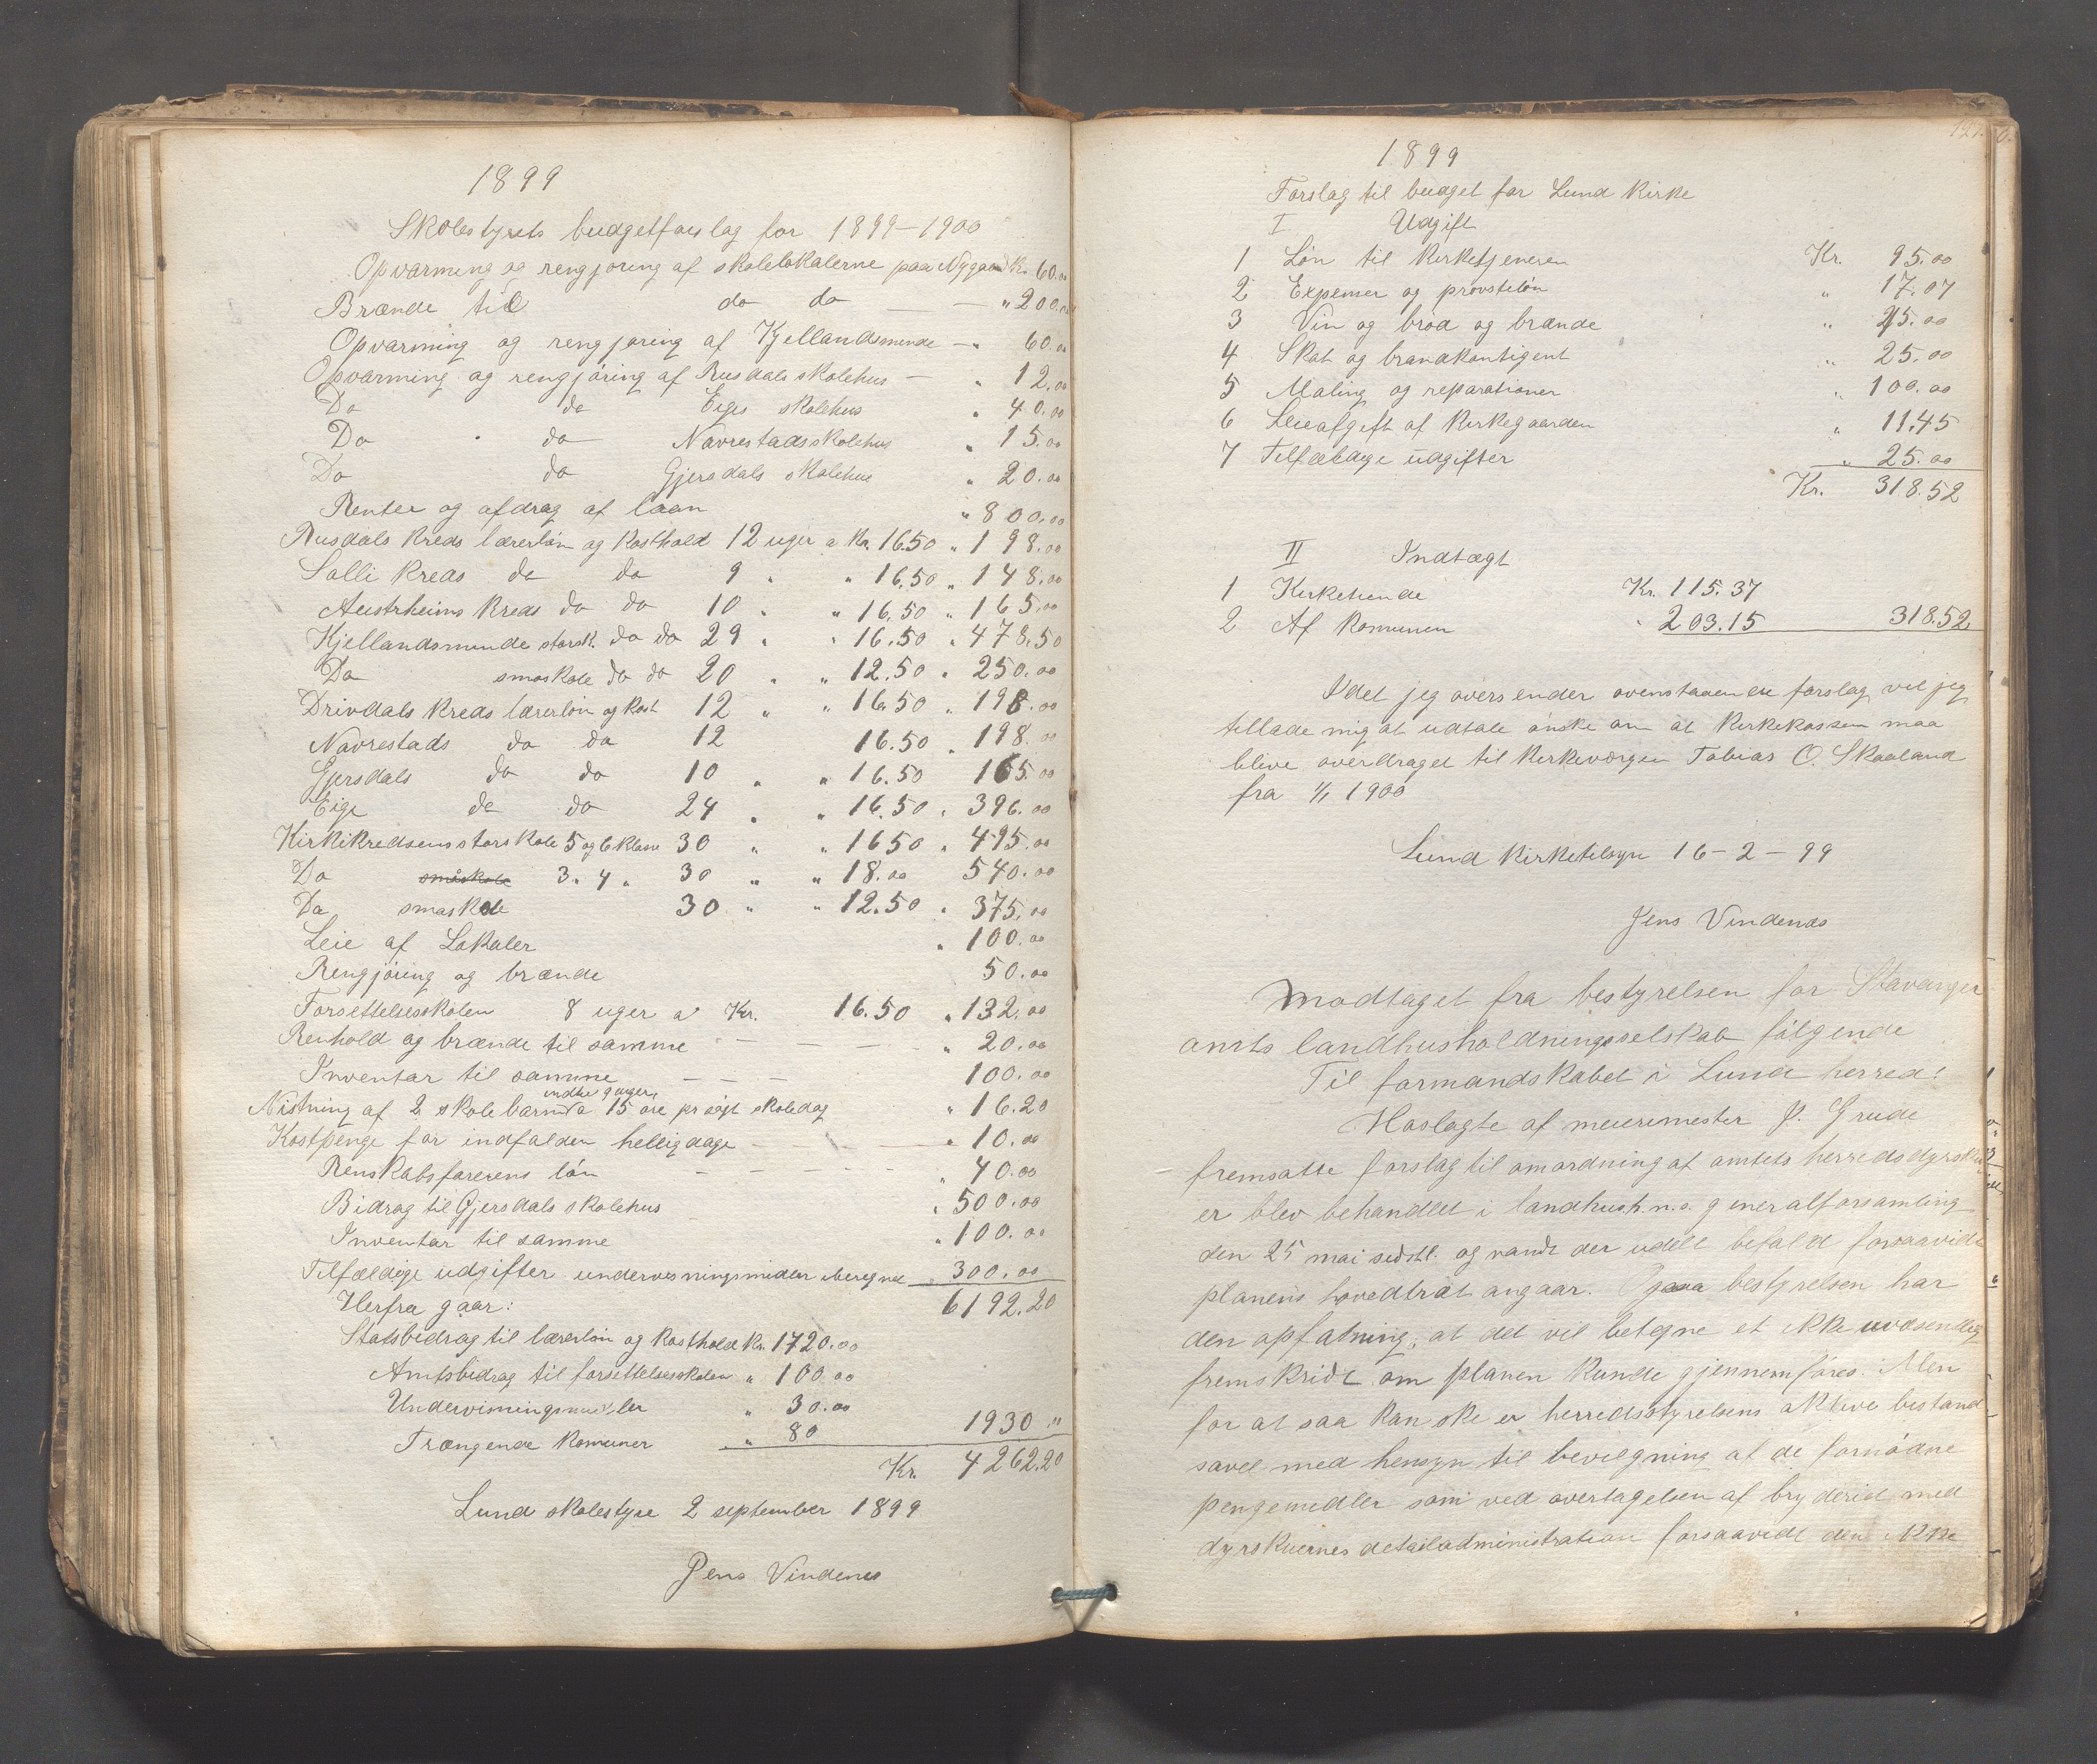 1899
Skolestyrets budgetforslag for 1899–1900
Opvarming og rengjøring af skolelokalerne paa Nygaard Kr. 60.00
Brænde til do do — " 200.00
Opvarming og rengjøring af Kjellandsminde — " 60.00
Opvarming og rengjøring af Rusdals skolehus — " 12.00
Do do Eiges skolehus " 40.00
Do do Navrestadsskolehus " 15.00
Do do Gjersdals skolehus " 20.00
Renter og afdrag af laan " 800.00
Rusdals Kreds lærerløn og Kosthold 12 uger a Kr. 16.50 " 198.00
Salli Kreds do do 9 " " 16.50 " 148.00
Austrheims Kreds do do 10 " " 16.50 " 165.00
Kjellandsminde storsk. do do 29 " " 16.50 " 478.50
Do smaskole do do 20 " " 12.50 " 250.00
Drivdals Kreds lærerløn og Kost 12 " " 16.50 " 198.00
Navrestads do do 12 16.50 " 198.00
Gjersdals do do 10 " " 16.50 165.00
Eige do do 24 " " 16.50 " 396.00
Kirkikredsens storskole 5 og 6 klasse 30 " " 16 50 " 495.00
Do småskole 3 " 4 " 30 " " 18.00 540.00
Do smaskole 30 " " 12.50 " 375.00
Leie af Lokaler " 100.00
Rengjøring og brænde 50.00
Forsettelsesskolen 8 uger a Kr. 16.50 " 132.00
Renhold og brænde til samme — — — — " 20.00
Inventar til samme — — — 100.00
indtil 9 uger
Nistning af 2 skolebarn a 15 øre pr søgt skoledag " 16.20
Kostpenge for indfalden helligdage — — — " 10.00
Renskabsførerens løn — — — — — " 40.00
Bidrag til Gjersdals skolehus — " 500.00
Inventar til samme " 100.00
Tilfældige udgifter undervesningsmidler iberegnet " 300.00
Herfra gaar: 6192.20
Statsbidrag til lærerløn og Kosthold Kr. 1720.00
Amtsbidrag til forsettelsesskolen " 100.00
Undervisningsmidler " 30.00
Trængende Komuner " 80 1930 "
Kr. 4262.20
Lund skolestyre 2 september 1899
Jens Vindenes
121.
1899
Forslag til budget for Lund Kirke
I Udgift
1 Løn til Kirketjeneren Kr. 95.00
2 Expenser og provsteløn " 17.07
3 Vin og brød og brænde " 45.00
4 Skat og brandkontigent " 25.00
5 Maling og reparationer " 100.00
6 Leieafgift af Kirkegaarden " 11.45
7 Tilfældige udgifter " 25.00
Kr. 318.52
II Indtægt
1 Kirketiende Kr. 115.37
2 Af Komunen " 203.15 318.52
Idet jeg oversender ovenstaaende forslag vil jeg
tillade mig at udtale ønske om at Kirkekassen maa
blive overdraget til Kirkeværgen Tobias O. Skaaland
fra 1/1 1900
Lund Kirketilsyn 16–2–99
Jens Vindenes
Modtaget fra bestyrelsen for Stavanger
amts landhusholdningsselskab følgende
Til formandskabet i Lund herred!
Hoslagte af meierimester P. Grude
fremsatte forslag til omordning af amtets herredsdyrskuer
er blev behandlet i landhush. n. s. generalforsamling
den 25 mai sidstl. og vandt der udelt befald forsaavidt
planens hovedtræk angaar. Ogsaa bestyrelsen har
den opfatning; at det vil betegne et ikke uvæsentlig
fremskridt om planen Kunde gjennemføres. Men
for at saa Kan ske er herredsstyrelsens aktive bistand
savel med hensyn til bevilgning af de fornødne
pengemidler som ved overtagelsen af bryderiet med
dyrskuernes detailadministration forsaavidt den ikke